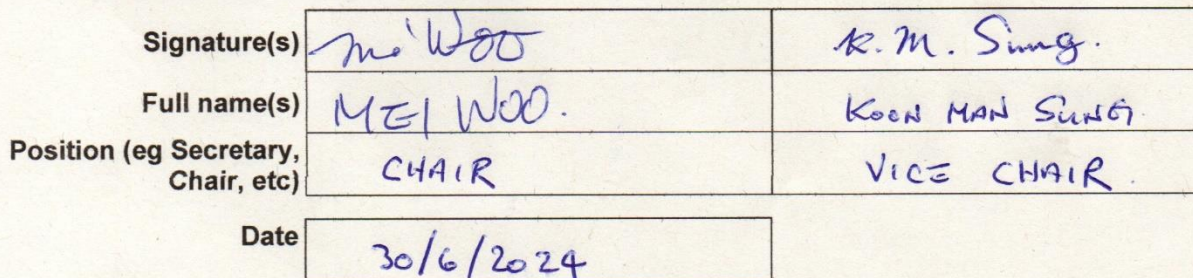 Signature(s) Mei Woo K. M. Sung.
Full name(s) MEI WOO. KOON MAN SUNG
Position (eg Secretary, Chair, etc) CHAIR VICE CHAIR.
Date 30/6/2024